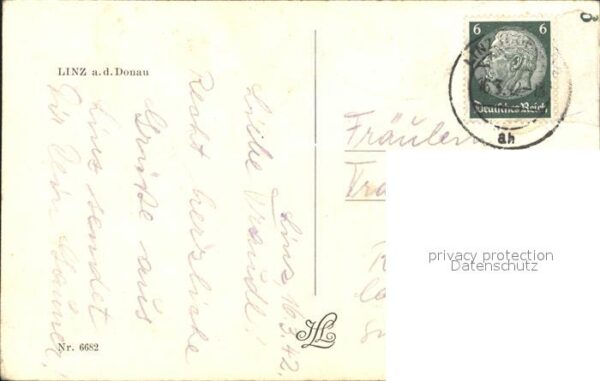 LINZ a. d. Donau
Linz, 16.3.42.
Liebe Traudl!
Recht herzliche
Grüße aus
Linz sendet
Dir Dein
Nr. 6682
6 6
Deutsches Reich
LINZ
ah
Fräulein
privacy protection
Datenschutz